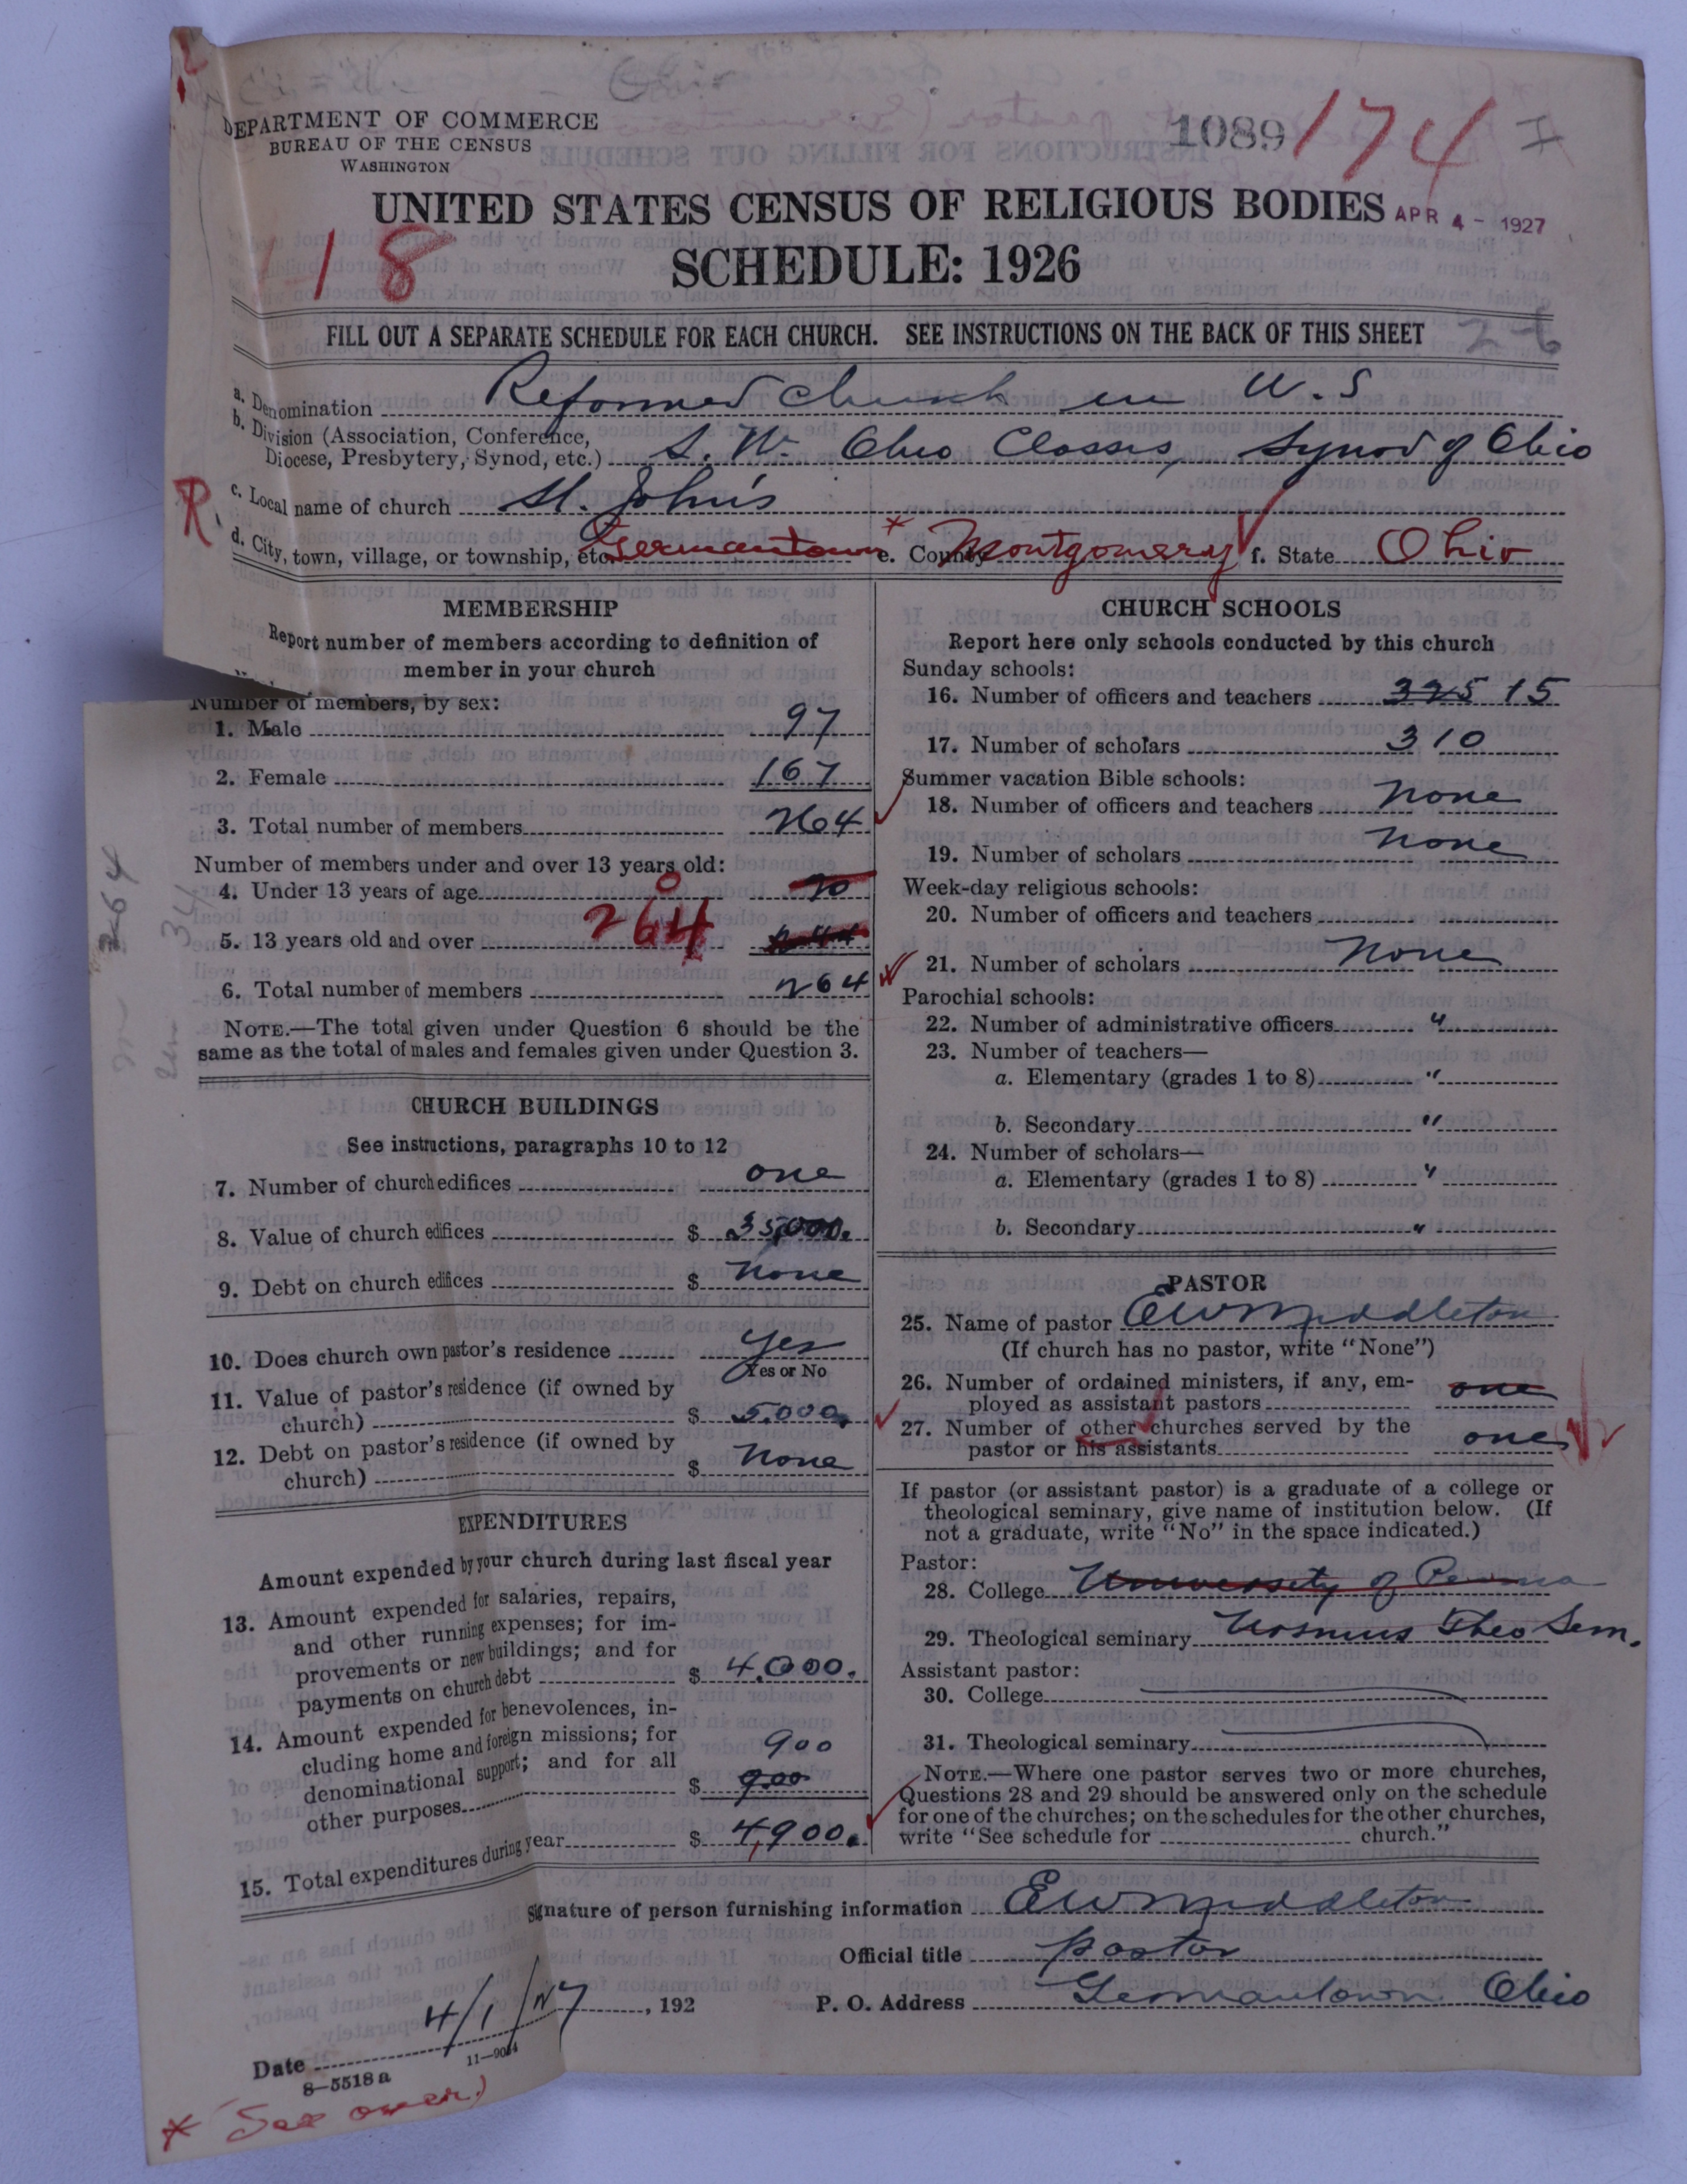 DEPARTMENT OF COMMERCE
BUREAU OF THE CENSUS
WASHINGTON
1089 174
UNITED STATES CENSUS OF RELIGIOUS BODIES APR 4 - 1927
118
SCHEDULE: 1926
FILL OUT A SEPARATE SCHEDULE FOR EACH CHURCH. SEE INSTRUCTIONS ON THE BACK OF THIS SHEET
26
a. Denomination Reformed Church in U.S
b. Division (Association, Conference,
Diocese, Presbytery, Synod, etc.) S.W. Ohio Classis, Synod of Ohio
R
c. Local name of church St. John's
d. City, town, village, or township, etc. Germantown * e. County Montgomery f. State Ohio
MEMBERSHIP
Report number of members according to definition of
member in your church
Number of members, by sex:
1. Male 97
2. Female 167
3. Total number of members 264
Number of members under and over 13 years old:
4. Under 13 years of age 0 20
5. 13 years old and over 264 244
6. Total number of members 264
NOTE.—The total given under Question 6 should be the
same as the total of males and females given under Question 3.
CHURCH BUILDINGS
See instructions, paragraphs 10 to 12
7. Number of church edifices one
8. Value of church edifices $ 35,000.
9. Debt on church edifices $ None
10. Does church own pastor's residence Yes
Yes or No
11. Value of pastor's residence (if owned by
church) $ 5.000.
12. Debt on pastor's residence (if owned by
church) $ None
EXPENDITURES
Amount expended by your church during last fiscal year
13. Amount expended for salaries, repairs,
and other running expenses; for im-
provements or new buildings; and for
payments on church debt $ 4.000.
14. Amount expended for benevolences, in-
cluding home and foreign missions; for 900
denominational support; and for all
other purposes $ 900
15. Total expenditures during year $ 4,900.
CHURCH SCHOOLS
Report here only schools conducted by this church
Sunday schools:
16. Number of officers and teachers 325 15
17. Number of scholars 310
Summer vacation Bible schools:
18. Number of officers and teachers None
19. Number of scholars None
Week-day religious schools:
20. Number of officers and teachers
21. Number of scholars None
Parochial schools:
22. Number of administrative officers "
23. Number of teachers—
a. Elementary (grades 1 to 8) "
b. Secondary "
24. Number of scholars—
a. Elementary (grades 1 to 8) "
b. Secondary "
PASTOR
25. Name of pastor E W Middleton
(If church has no pastor, write "None")
26. Number of ordained ministers, if any, em-
ployed as assistant pastors one
27. Number of other churches served by the
pastor or his assistants one
If pastor (or assistant pastor) is a graduate of a college or
theological seminary, give name of institution below. (If
not a graduate, write "No" in the space indicated.)
Pastor:
28. College University of Penna
29. Theological seminary Ursinus Theo Sem.
Assistant pastor:
30. College
31. Theological seminary
NOTE.—Where one pastor serves two or more churches,
Questions 28 and 29 should be answered only on the schedule
for one of the churches; on the schedules for the other churches,
write "See schedule for church."
Signature of person furnishing information E W Middleton
Official title pastor
P. O. Address Germantown Ohio
Date 4/1/27, 192
8—5518 a 11—9034
* See over)
264